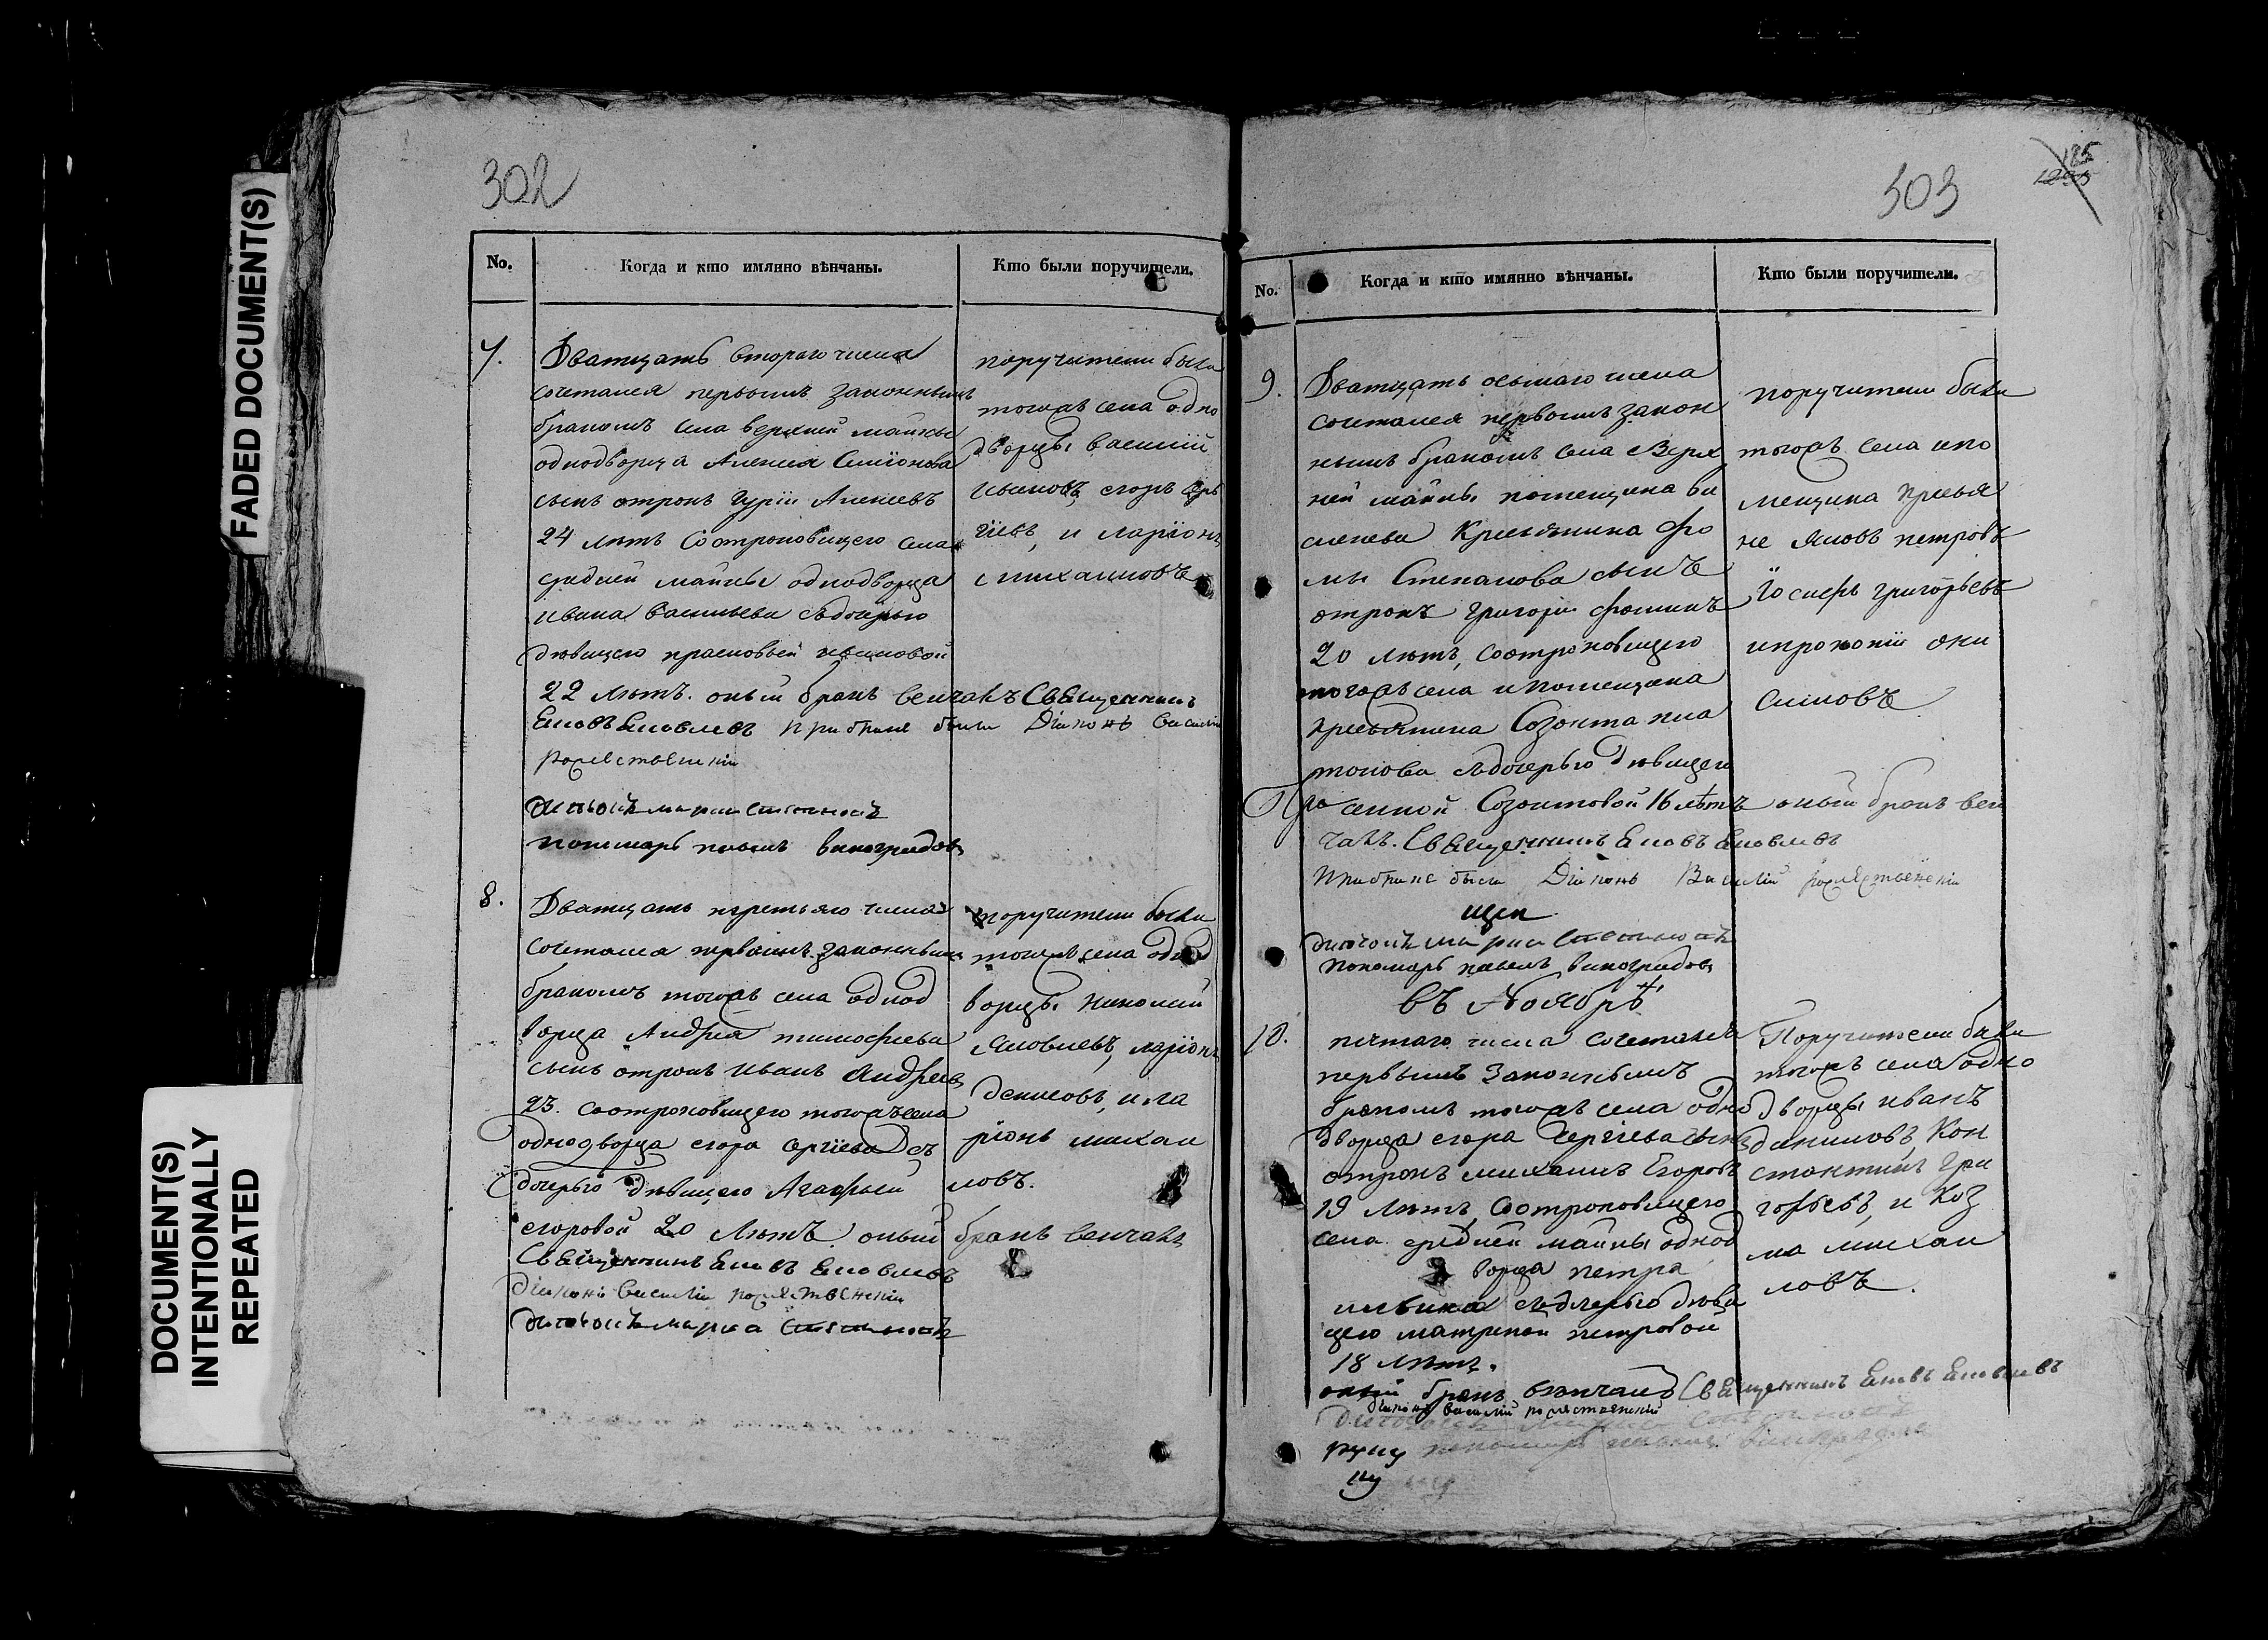 FADED DOCUMENT(S)
DOCUMENT(S)
INTENTIONALLY
REPEATED
302
No.
Когда и кто имянно вѣнчаны.
Кто были поручители.
7.
Дватцать втораго числа
сочетался первымъ законнымъ
бракомъ села верхней майны
однодворца Алексея Симіонова
сынъ отрокъ Гурій Алексевъ
24 лѣтъ Соотроковицею села
средней майны однодворца
ивана васильева съдочерью
дѣвицею прасковьей ивановой
22 лѣтъ. оный бракъ венчалъ Священникъ
Яковъ Яковлевъ при браке были Діаконъ Василій
рождественскій
дьячокъ
пономарь павелъ виноградовъ
поручители были
тогожъ села одно
дворцы василий
егоръ
и ларіонъ
михаиловъ
8.
Дватцать третьяго числа
сочетался первымъ законнымъ
бракомъ тогожъ села однод
ворца Андрея тимофеева
сынъ отрокъ иванъ Андреевъ
23. соотроковицею тогожъ села
однодворца егора сергіева съ
дочерью дѣвицею Агафьей
егоровой 20 Лѣтъ оный бракъ венчалъ
Священникъ Яковъ Яковлевъ
діаконъ василій рождественскій
дьячокъ
поручители были
тогожъ села однод
ворцы николай
Яковлевъ, ларіонъ
денисовъ, и ла
ріонъ михаи
ловъ.
303
125
No.
Когда и кто имянно вѣнчаны.
Кто были поручители.
9.
Дватцать осьмаго числа
сочетался первымъ закон
нымъ бракомъ села Верх
ней майны помещика
Крестьянина Фо
мы Степанова сынъ
отрокъ григорій фоминъ
20 лѣтъ, соотроковицею
тогожъ села и помещика
крестьянина Созонта пла
тонова съдочерью дѣвицею
Созонтовой 16 лѣтъ оный бракъ вен
чалъ. Священникъ Яковъ Яковлевъ
При браке были Діаконъ Василій рождественскій
дьячокъ
пономарь павелъ виноградовъ
поручители были
тогожъ села ипо
мещика крестья
не Яковъ петровъ
Іосифъ григорьевъ
ипрокопій они
симовъ
въ Ноябрѣ
10.
пятаго числа сочетался
первымъ Законнымъ
бракомъ тогожъ села одно
дворца егора Сергіева сынъ
отрокъ михаилъ Егоровъ
19 лѣтъ, Соотроковицею
села средней майны однод
ворца петра
съдочерью дѣви
цею матреной петровой
18 лѣтъ.
оный бракъ венчалъ Священникъ Яковъ Яковлевъ
діаконъ василій рождественскій
руку
Поручители были
тогожъ села одно
дворцы иванъ
даниловъ Кон
стантинъ Гри
горьевъ, и Коз
ма михаи
ловъ.